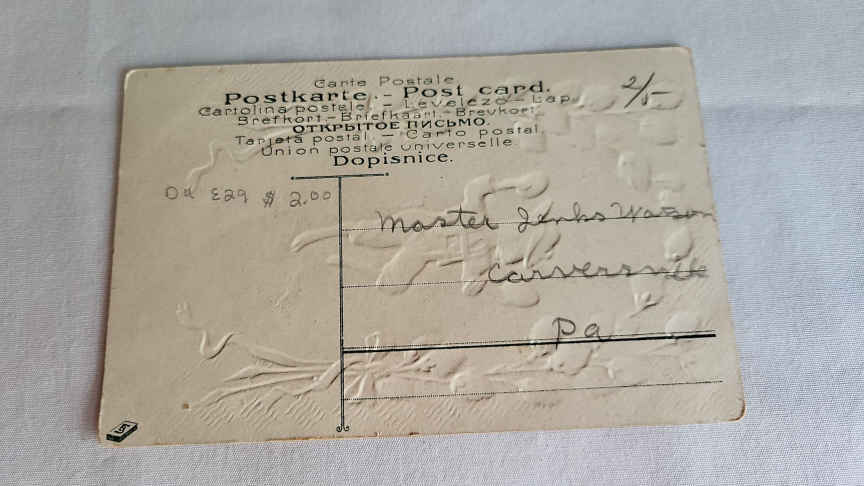 Carte Postale
Postkarte. - Post card.
Cartolina postale. - Levelezö - Lap.
Brefkort. - Briefkaart. - Brevkoet.
ОТКРЫТОЕ ПИСЬМО.
Tarjeta postal. - Carto postal.
Union postale universelle.
Dopisnice.
2/-
Da £29 $ 2.00
Master Jenks Watson
Carversville
Pa